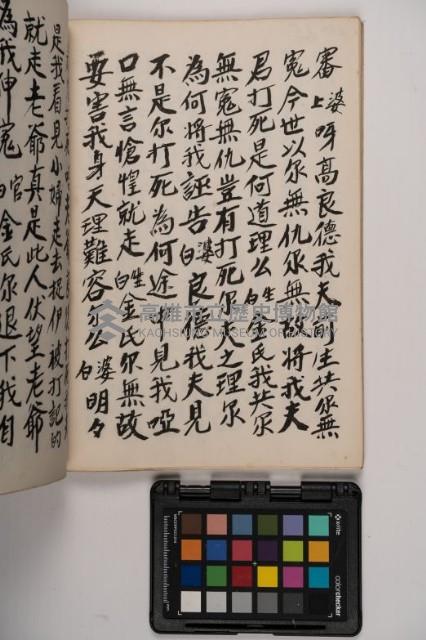 審上婆呀高良德我夫前生共尔無
寃今世以尔無仇尔無故將我夫
君打死是何道理公白生金氏我共尔
無寃無仇豈有打死尔夫之理尔
為何將我誣告白婆良德我夫見
不是尔打死為何途中見我啞
口無言愴惶就走白生金氏尔無故
要害我身天理難容公白婆明々
是我看見小婦走去捉伊被打記的
就走老爺真是此人伏望老爺
為我伸寃白官金氏尔退下我自
高雄市立歷史博物館
KAOHSIUNG MUSEUM OF HISTORY
x-rite
colorchecker